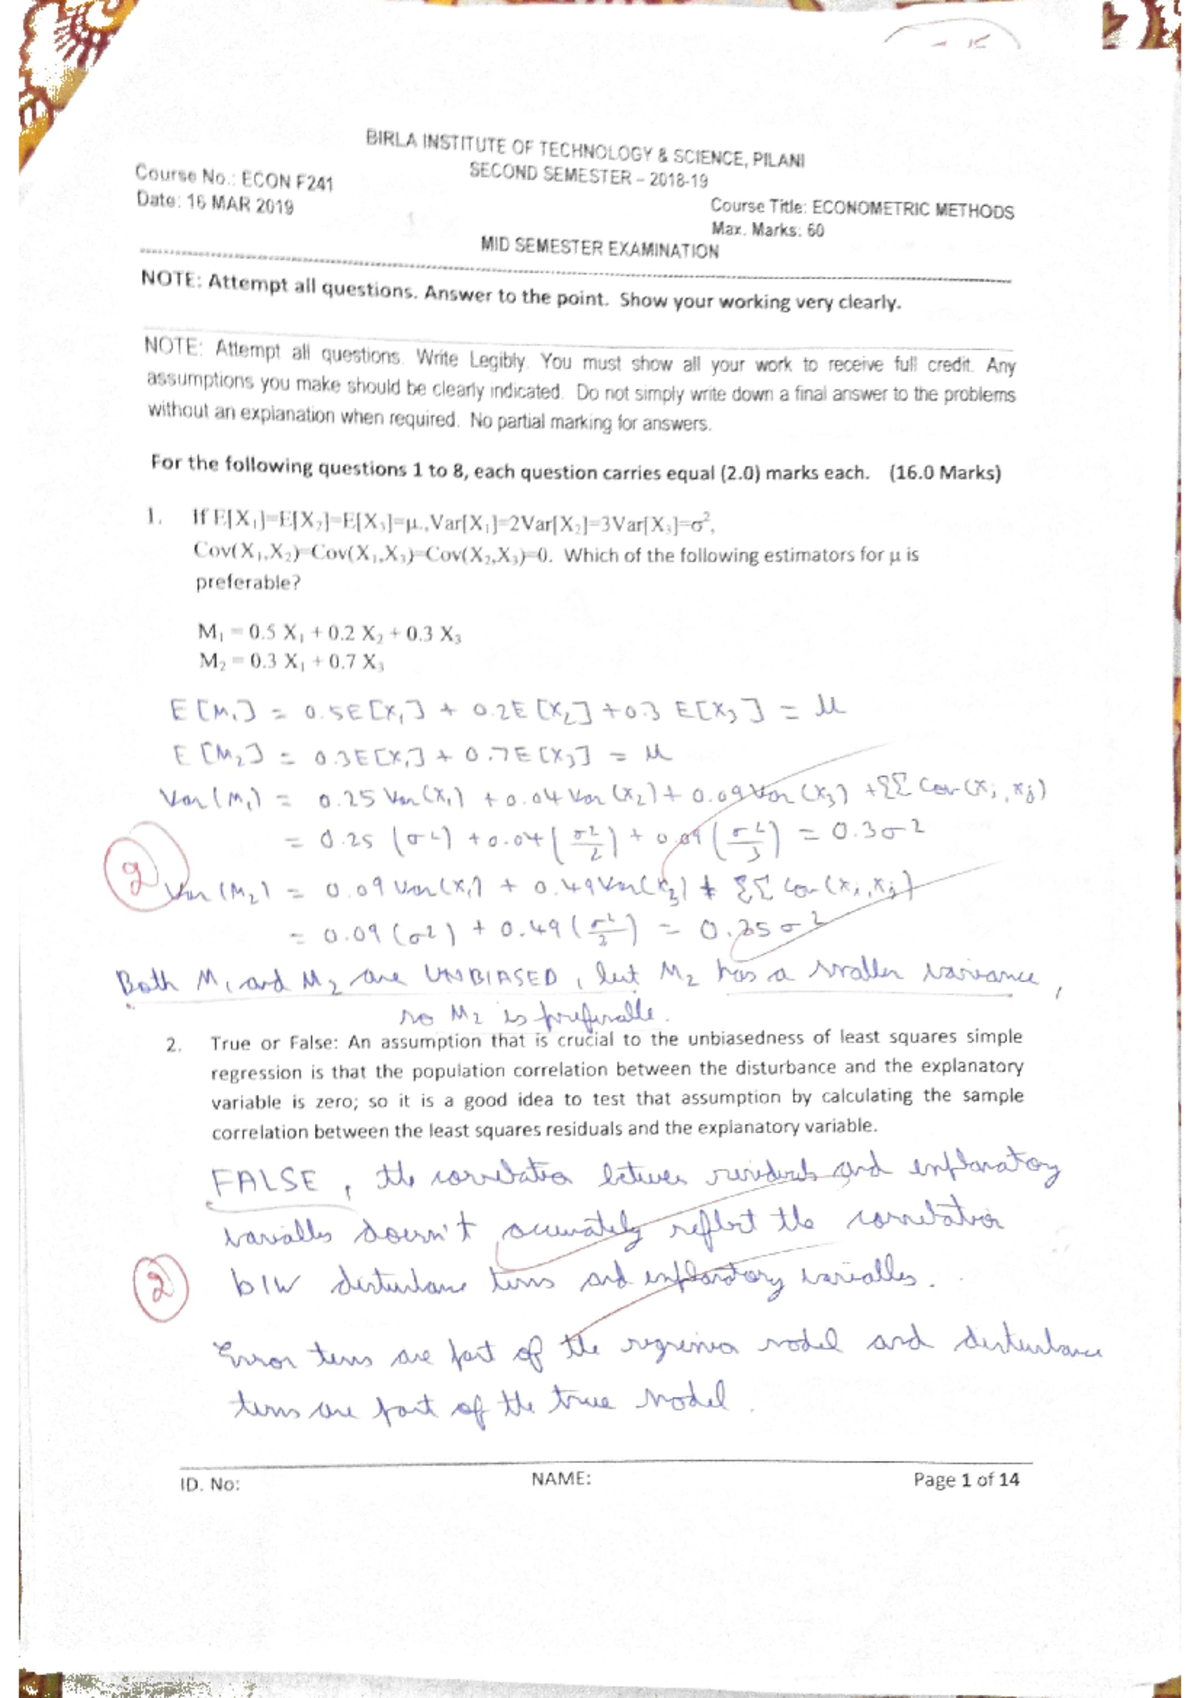 BIRLA INSTITUTE OF TECHNOLOGY & SCIENCE, PILANI
SECOND SEMESTER – 2018-19
Course No.: ECON F241
Course Title: ECONOMETRIC METHODS
Date: 16 MAR 2019
Max. Marks: 60
MID SEMESTER EXAMINATION
NOTE: Attempt all questions. Answer to the point. Show your working very clearly.
NOTE: Attempt all questions. Write Legibly. You must show all your work to receive full credit. Any
assumptions you make should be clearly indicated. Do not simply write down a final answer to the problems
without an explanation when required. No partial marking for answers.
For the following questions 1 to 8, each question carries equal (2.0) marks each. (16.0 Marks)
1. If E[X₁]=E[X₂]=E[X₃]=μ.,Var[X₁]=2Var[X₂]=3Var[X₃]=σ²,
Cov(X₁,X₂)=Cov(X₁,X₃)=Cov(X₂,X₃)=0. Which of the following estimators for μ is
preferable?
M₁ = 0.5 X₁ + 0.2 X₂ + 0.3 X₃
M₂ = 0.3 X₁ + 0.7 X₃
E[M₁] = 0.5E[X₁] + 0.2E[X₂] + 0.3 E[X₃] = μ
E[M₂] = 0.3E[X₁] + 0.7E[X₃] = μ
Var(M₁) = 0.25 Var(X₁) + 0.04 Var(X₂) + 0.09 Var(X₃) + ΣΣ Cov(Xᵢ, Xⱼ)
= 0.25 (σ²) + 0.04 (σ²/2) + 0.09 (σ²/3) = 0.3σ²
2
Var(M₂) = 0.09 Var(X₁) + 0.49 Var(X₃) + ΣΣ Cov(Xᵢ, Xⱼ)
= 0.09 (σ²) + 0.49 (σ²/3) = 0.25σ²
Both M₁ and M₂ are UNBIASED, but M₂ has a smaller variance,
so M₂ is preferable.
2. True or False: An assumption that is crucial to the unbiasedness of least squares simple
regression is that the population correlation between the disturbance and the explanatory
variable is zero; so it is a good idea to test that assumption by calculating the sample
correlation between the least squares residuals and the explanatory variable.
FALSE, the correlation between residuals and explanatory
variables doesn't accurately reflect the correlation
2
b/w disturbance terms and explanatory variables.
Error terms are part of the regression model and disturbance
terms are part of the true model.
ID. No:
NAME:
Page 1 of 14